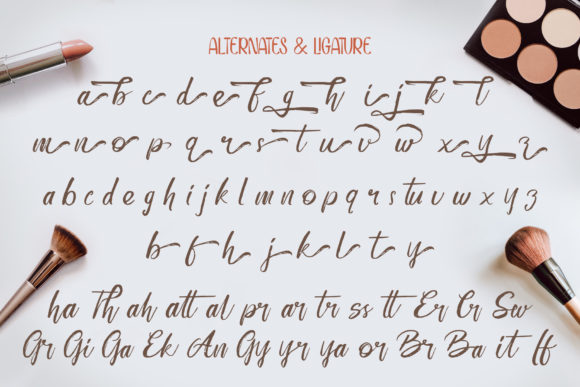 ALTERNATES & LIGATURE
a b c d e f g h i j k l
m n o p q r s t u v w x y z
a b c d e f g h i j k l m n o p q r s t u v w x y z
b f h j k l t y
ha Th ah att al pr ar tr ss tt Er Cr Sw
Gr Gi Ga Ek An Gy yr ya or Br Ba it ff